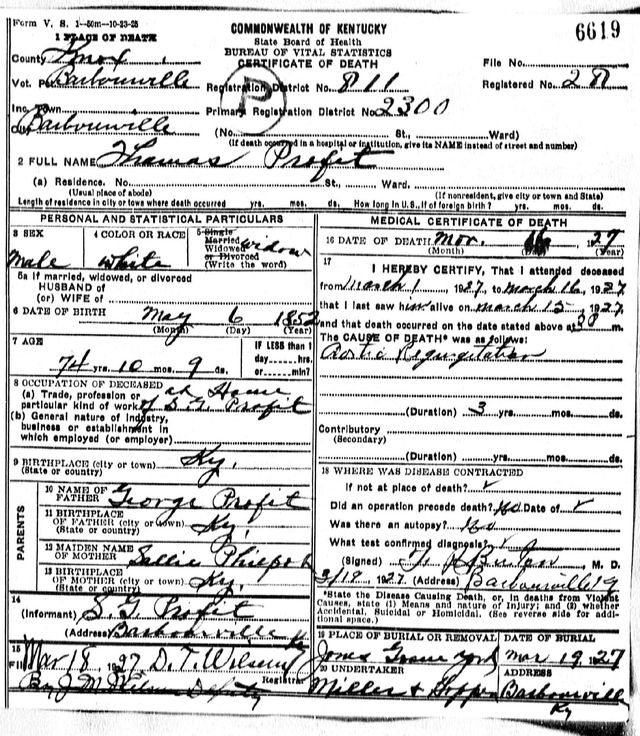 Form V. S. 1—50m—10-23-25
COMMONWEALTH OF KENTUCKY
State Board of Health
BUREAU OF VITAL STATISTICS
CERTIFICATE OF DEATH
6619
1 PLACE OF DEATH
County Knox
Vot. Pct. Barbourville
Inc. Town
City Barbourville
File No.
Registration District No. 811
Registered No. 28
Primary Registration District No. 2300
P
(No. St., Ward)
(If death occurred in a hospital or institution, give its NAME instead of street and number)
2 FULL NAME Thomas Profit
(a) Residence. No. St., Ward.
(Usual place of abode) (If nonresident, give city or town and State)
Length of residence in city or town where death occurred yrs. mos. ds. How long in U.S., if of foreign birth? yrs. mos. ds.
PERSONAL AND STATISTICAL PARTICULARS
3 SEX Male
4 COLOR OR RACE white
5 Single
Married
Widowed
or Divorced
(Write the word) widow
5a If married, widowed, or divorced
HUSBAND of
(or) WIFE of
6 DATE OF BIRTH May 6 1852
(Month) (Day) (Year)
7 AGE
74 yrs. 10 mos. 9 ds.
IF LESS than 1
day hrs.
or min?
8 OCCUPATION OF DECEASED
(a) Trade, profession or
particular kind of work at Home
of S. G. Profit
(b) General nature of industry,
business or establishment in
which employed (or employer)
9 BIRTHPLACE (city or town) Ky.
(State or country)
PARENTS
10 NAME OF
FATHER George Profit
11 BIRTHPLACE
OF FATHER (city or town) Ky.
(State or country)
12 MAIDEN NAME
OF MOTHER Sallie Philpot
13 BIRTHPLACE
OF MOTHER (city or town) Ky.
(State or country)
14
(Informant) S. G. Profit
(Address) Barbourville Ky
15
Filed Mar 18 1927 D. T. Wilson
Registrar
By J. M. Wilson Deputy
MEDICAL CERTIFICATE OF DEATH
16 DATE OF DEATH Mar. 16 1927
(Month) (Day) (Year)
17
I HEREBY CERTIFY, That I attended deceased
from March 1, 1927, to March 16, 1927
that I last saw him alive on March 15, 1927
and that death occurred on the date stated above at m.
The CAUSE OF DEATH* was as follows:
Aortic Regurgitation
(Duration) 3 yrs. mos. ds.
Contributory
(Secondary)
(Duration) yrs. mos. ds.
18 WHERE WAS DISEASE CONTRACTED
If not at place of death?
Did an operation precede death? No Date of
Was there an autopsy? No
What test confirmed diagnosis?
(Signed) M. D.
3/18, 1927. (Address) Barbourville Ky
*State the Disease Causing Death, or, in deaths from Violent
Causes, state (1) Means and nature of Injury; and (2) whether
Accidental, Suicidal or Homicidal. (See reverse side for addi-
tional space.)
19 PLACE OF BURIAL OR REMOVAL
Jones Grave yard
DATE OF BURIAL
Mar 19 1927
20 UNDERTAKER
Miller &
ADDRESS
Barbourville
Ky